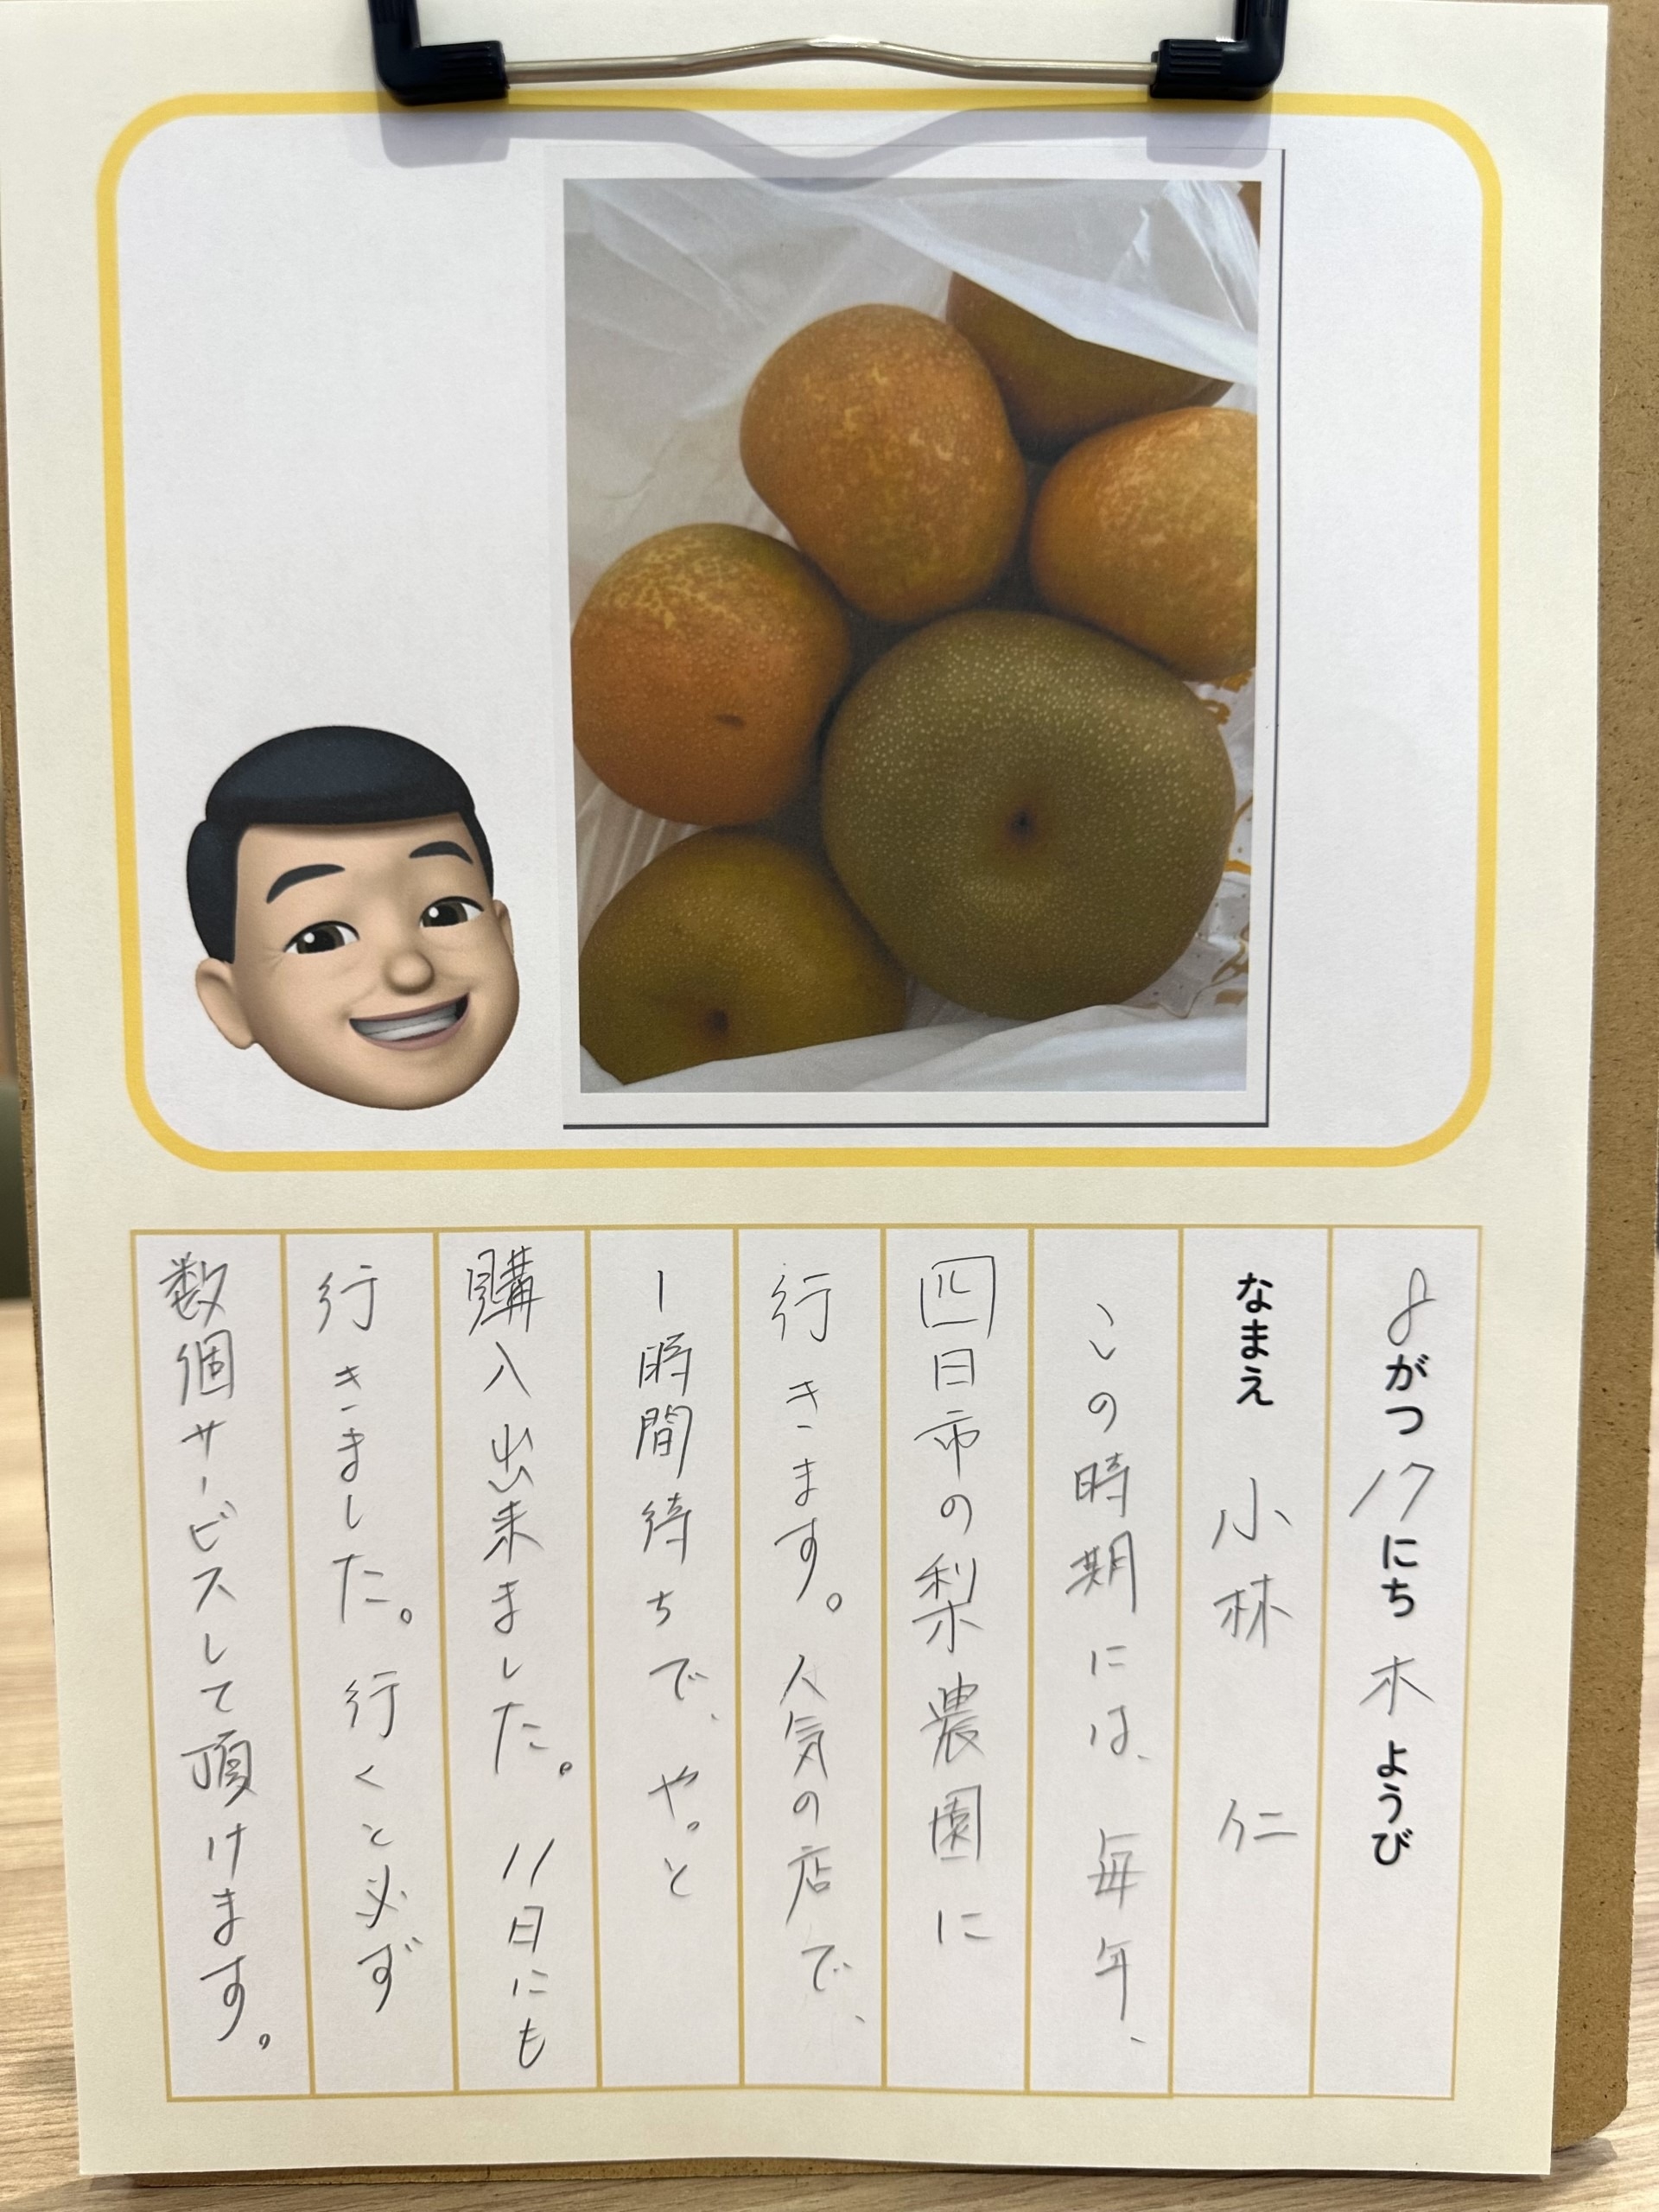 8がつ17にち木ようび
なまえ 小林 仁
この時期には、毎年、
四日市の梨農園に
行きます。人気の店で、
1時間待ちで、やっと
購入出来ました。11日にも
行きました。行くと必ず
数個サービスして頂けます。